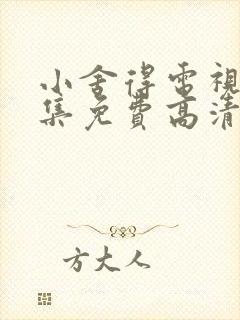 小舍得電視
集免費高清
方大人